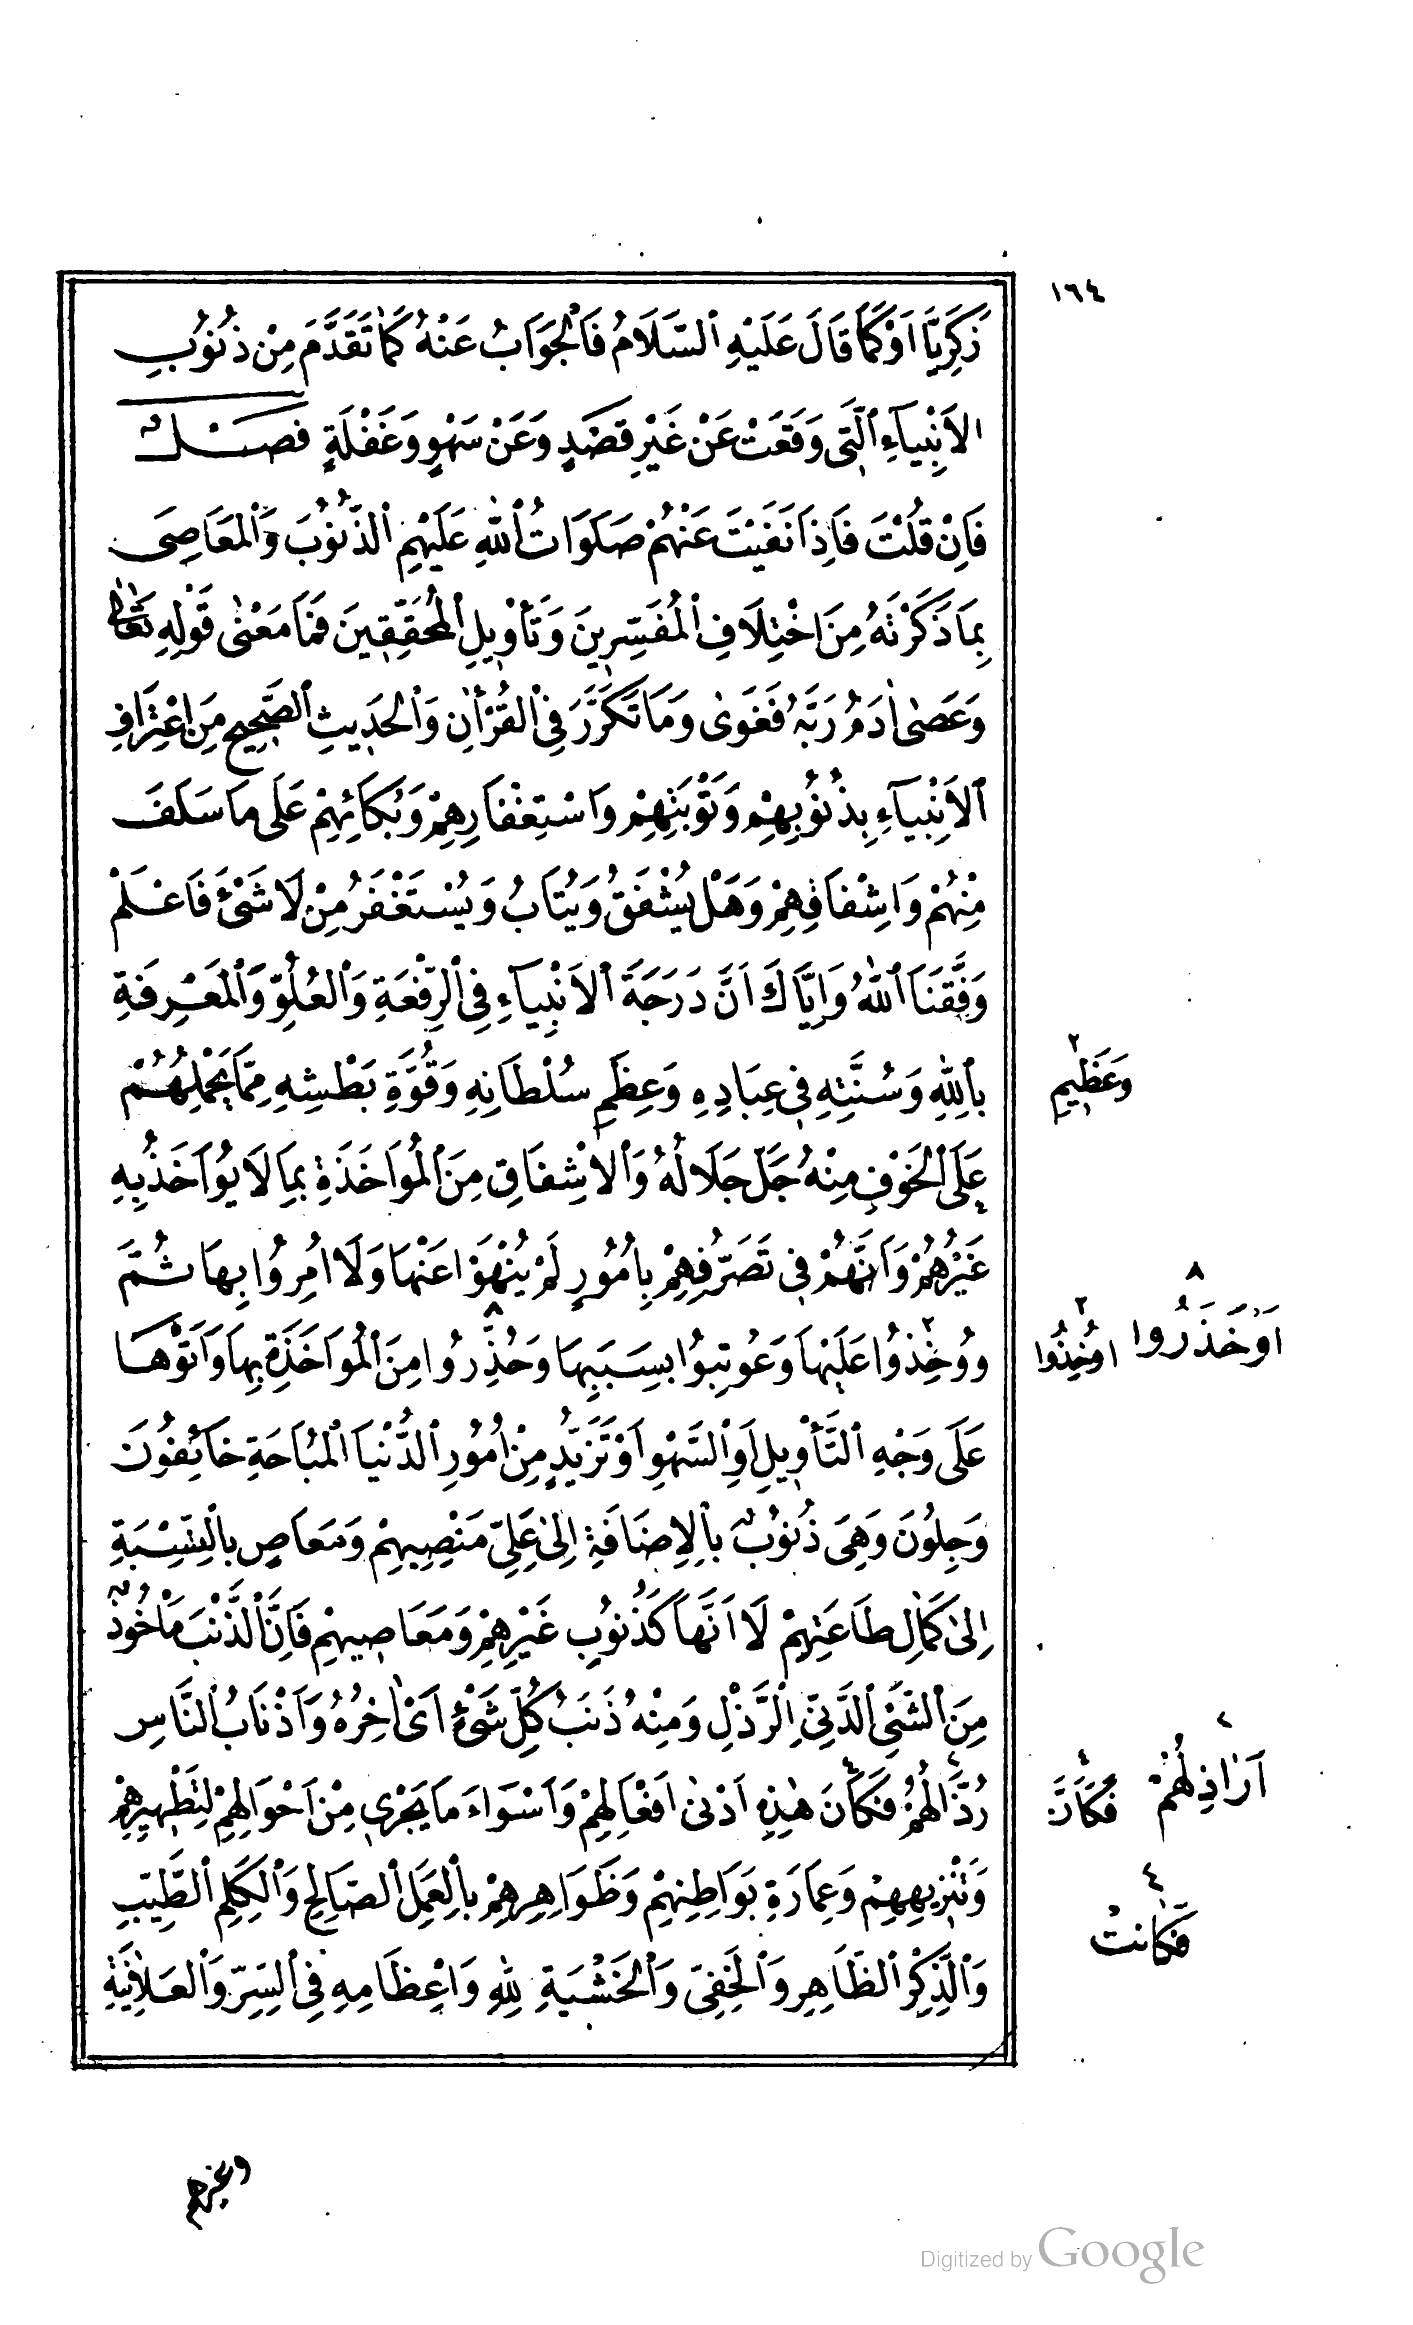 ١٦٤
زَكَرِيَّا اَوْ كَمَا قَالَ عَلَيْهِ السَّلَامُ فَالْجَوَابُ عَنْهُ كَمَا تَقَدَّمَ مِنْ ذُنُوبِ
الْاَنْبِيَآءِ الَّتِى وَقَعَتْ عَنْ غَيْرِ قَصْدٍ وَعَنْ سَهْوٍ وَغَفْلَةٍ فصـــل
فَاِنْ قُلْتَ فَاِذَا نَفَيْتَ عَنْهُمْ صَلَوَاتُ اللّٰهِ عَلَيْهِمِ الذُّنُوبَ وَالْمَعَاصِىَ
بِمَا ذَكَرْتَهُ مِنَ اخْتِلَافِ الْمُفَسِّرِينَ وَتَأْوِيلِ الْمُحَقِّقِينَ فَمَا مَعْنٰى قَوْلِهِ تَعَالٰى
وَعَصٰى اٰدَمُ رَبَّهُ فَغَوٰى وَمَا تَكَرَّرَ فِى الْقُرْاٰنِ وَالْحَدِيثِ الصَّحِيحِ مِنَ اعْتِرَافِ
الْاَنْبِيَآءِ بِذُنُوبِهِمْ وَتَوْبَتِهِمْ وَاسْتِغْفَارِهِمْ وَبُكَائِهِمْ عَلَى مَا سَلَفَ
مِنْهُمْ وَاِشْفَاقِهِمْ وَهَلْ يُشْفَقُ وَيُتَابُ وَيُسْتَغْفَرُ مِنْ لَا شَىْءَ فَاعْلَمْ
وَفَّقَنَا اللّٰهُ وَاِيَّاكَ اَنَّ دَرَجَةَ الْاَنْبِيَآءِ فِى الرِّفْعَةِ وَالْعُلُوِّ وَالْمَعْرِفَةِ
بِاللّٰهِ وَسُنَّتِهِ فِى عِبَادِهِ وَعِظَمِ سُلْطَانِهِ وَقُوَّةِ بَطْشِهِ مِمَّا يَحْمِلُهُمْ
٢ وَعَظِيمِ
عَلَى الْخَوْفِ مِنْهُ جَلَّ جَلَالُهُ وَالْاِشْفَاقِ مِنَ الْمُوَاخَذَةِ بِمَا لَا يُوَاخَذُ بِهِ
غَيْرُهُمْ وَاَنَّهُمْ فِى تَصَرُّفِهِمْ بِاُمُورٍ لَمْ يُنْهَوْا عَنْهَا وَلَا اُمِرُوا بِهَا ثُمَّ
وَوُخِذُوا عَلَيْهَا وَعُوتِبُوا بِسَبَبِهَا وَحُذِّرُوا مِنَ الْمُوَاخَذَةِ بِهَا وَاَتَوْهَا
٨ اَوْحَذِرُوا ٢ اُوخِذُوا
عَلَى وَجْهِ التَّأْوِيلِ اَوِ السَّهْوِ اَوْ تَزَيُّدٍ مِنْ اُمُورِ الدُّنْيَا الْمُبَاحَةِ خَائِفُونَ
وَجِلُونَ وَهِىَ ذُنُوبٌ بِالْاِضَافَةِ اِلٰى عَلِىِّ مَنْصِبِهِمْ وَمَعَاصٍ بِالنِّسْبَةِ
اِلٰى كَمَالِ طَاعَتِهِمْ لَا اَنَّهَا كَذُنُوبِ غَيْرِهِمْ وَمَعَاصِيهِمْ فَاِنَّ الذَّنْبَ مَأْخُوذٌ
مِنَ الشَّىْءِ الدَّنِىِّ الرَّذْلِ وَمِنْهُ ذَنَبُ كُلِّ شَىْءٍ اَىْ اٰخِرُهُ وَاَذْنَابُ النَّاسِ
رُذَّالُهُمْ فَكَاَنَ هٰذِهِ اَدْنٰى اَفْعَالِهِمْ وَاَسْوَاءَ مَا يَجْرِى مِنْ اَحْوَالِهِمْ لِتَطْهِيرِهِمْ
اَرَاذِلُهُمْ ٤ فَكَاَنَّ
وَتَنْزِيهِهِمْ وَعِمَارَةِ بَوَاطِنِهِمْ وَظَوَاهِرِهِمْ بِالْعَمَلِ الصَّالِحِ وَالْكَلِمِ الطَّيِّبِ
٤ فَكَانَتْ
وَالذِّكْرِ الظَّاهِرِ وَالْخَفِىِّ وَالْخَشْيَةِ لِلّٰهِ وَاِعْظَامِهِ فِى السِّرِّ وَالْعَلَانِيَةِ
وغيرهم
Digitized by Google